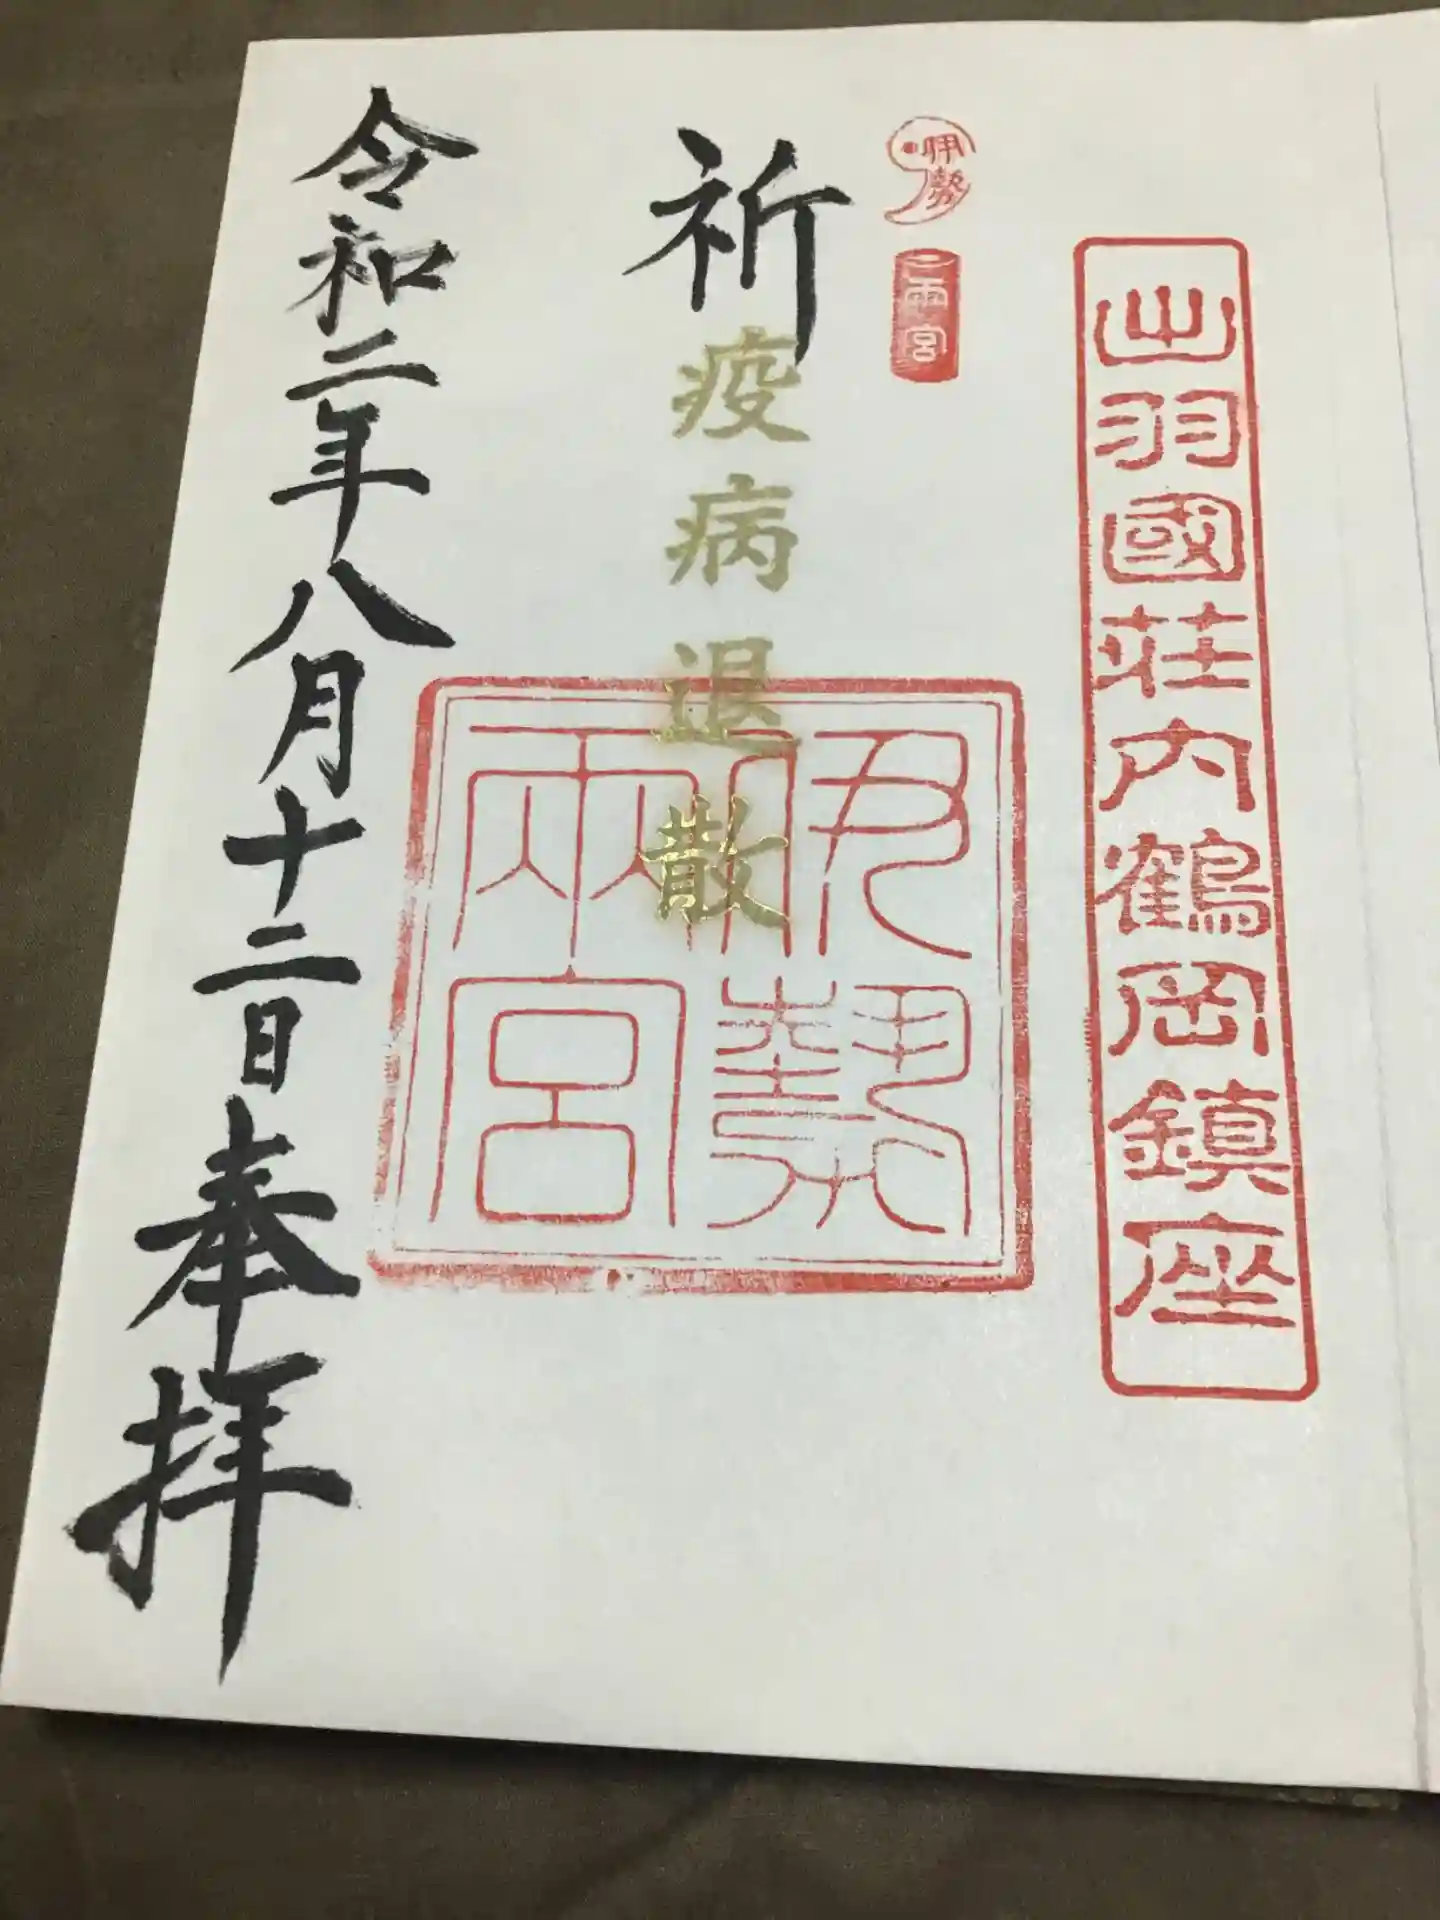 出羽國荘内鶴岡鎮座
伊勢
両宮
祈疫病退散
伊勢
両宮
令和二年八月十二日奉拝